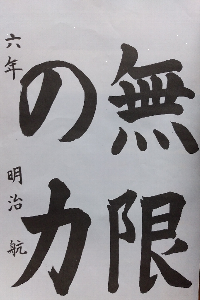 無限
の力
六年　明治　航